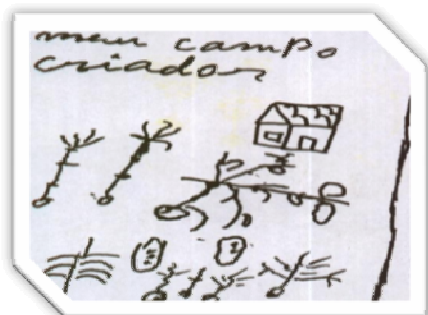 meu campo
criador